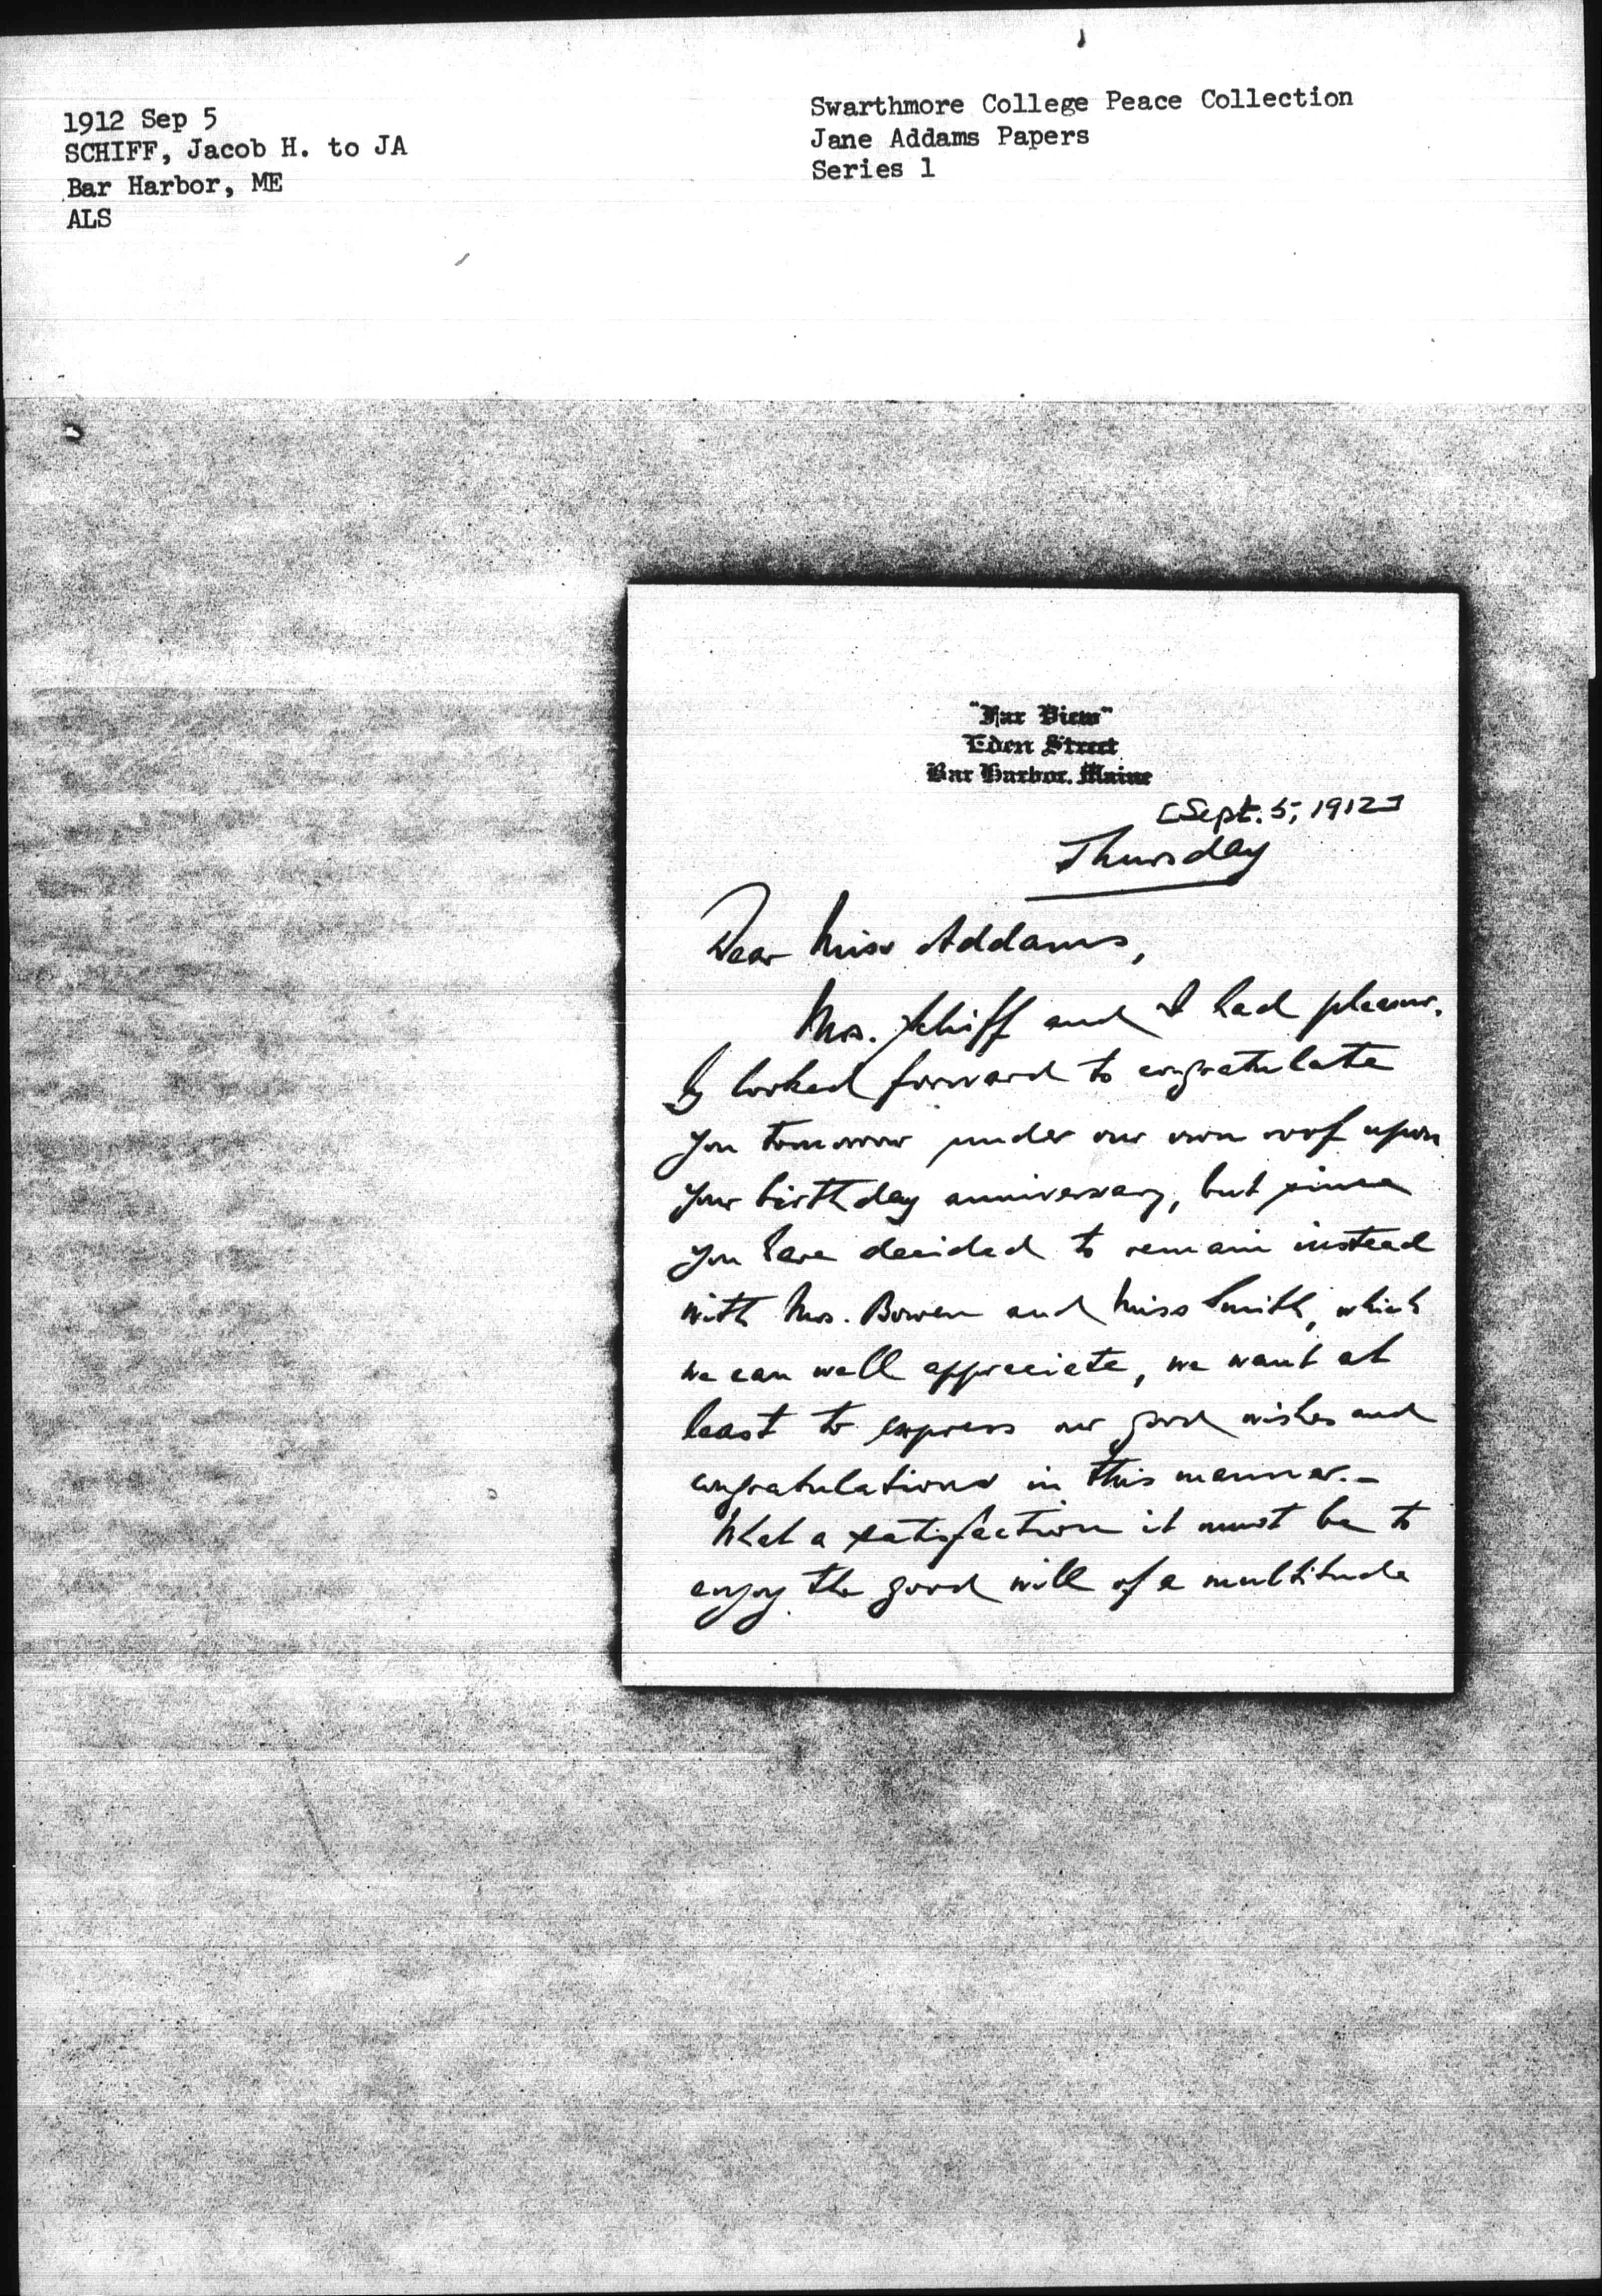 1912 Sep 5
SCHIFF, Jacob H. to JA
Bar Harbor, ME
ALS
Swarthmore College Peace Collection
Jane Addams Papers
Series 1
"Far View"
Eden Street
Bar Harbor. Maine
[Sept. 5, 1912]
Thursday
Dear Miss Addams,
Mrs. Schiff and I had pleasur-
ly looked forward to congratulate
you tomorrow under our own roof upon
your birthday anniversary, but since
you have decided to remain instead
with Mrs. Bowen and Miss Smith, which
we can well appreciate, we want at
least to express our good wishes and
congratulations in this manner.-
What a satisfaction it must be to
enjoy the good will of a multitude